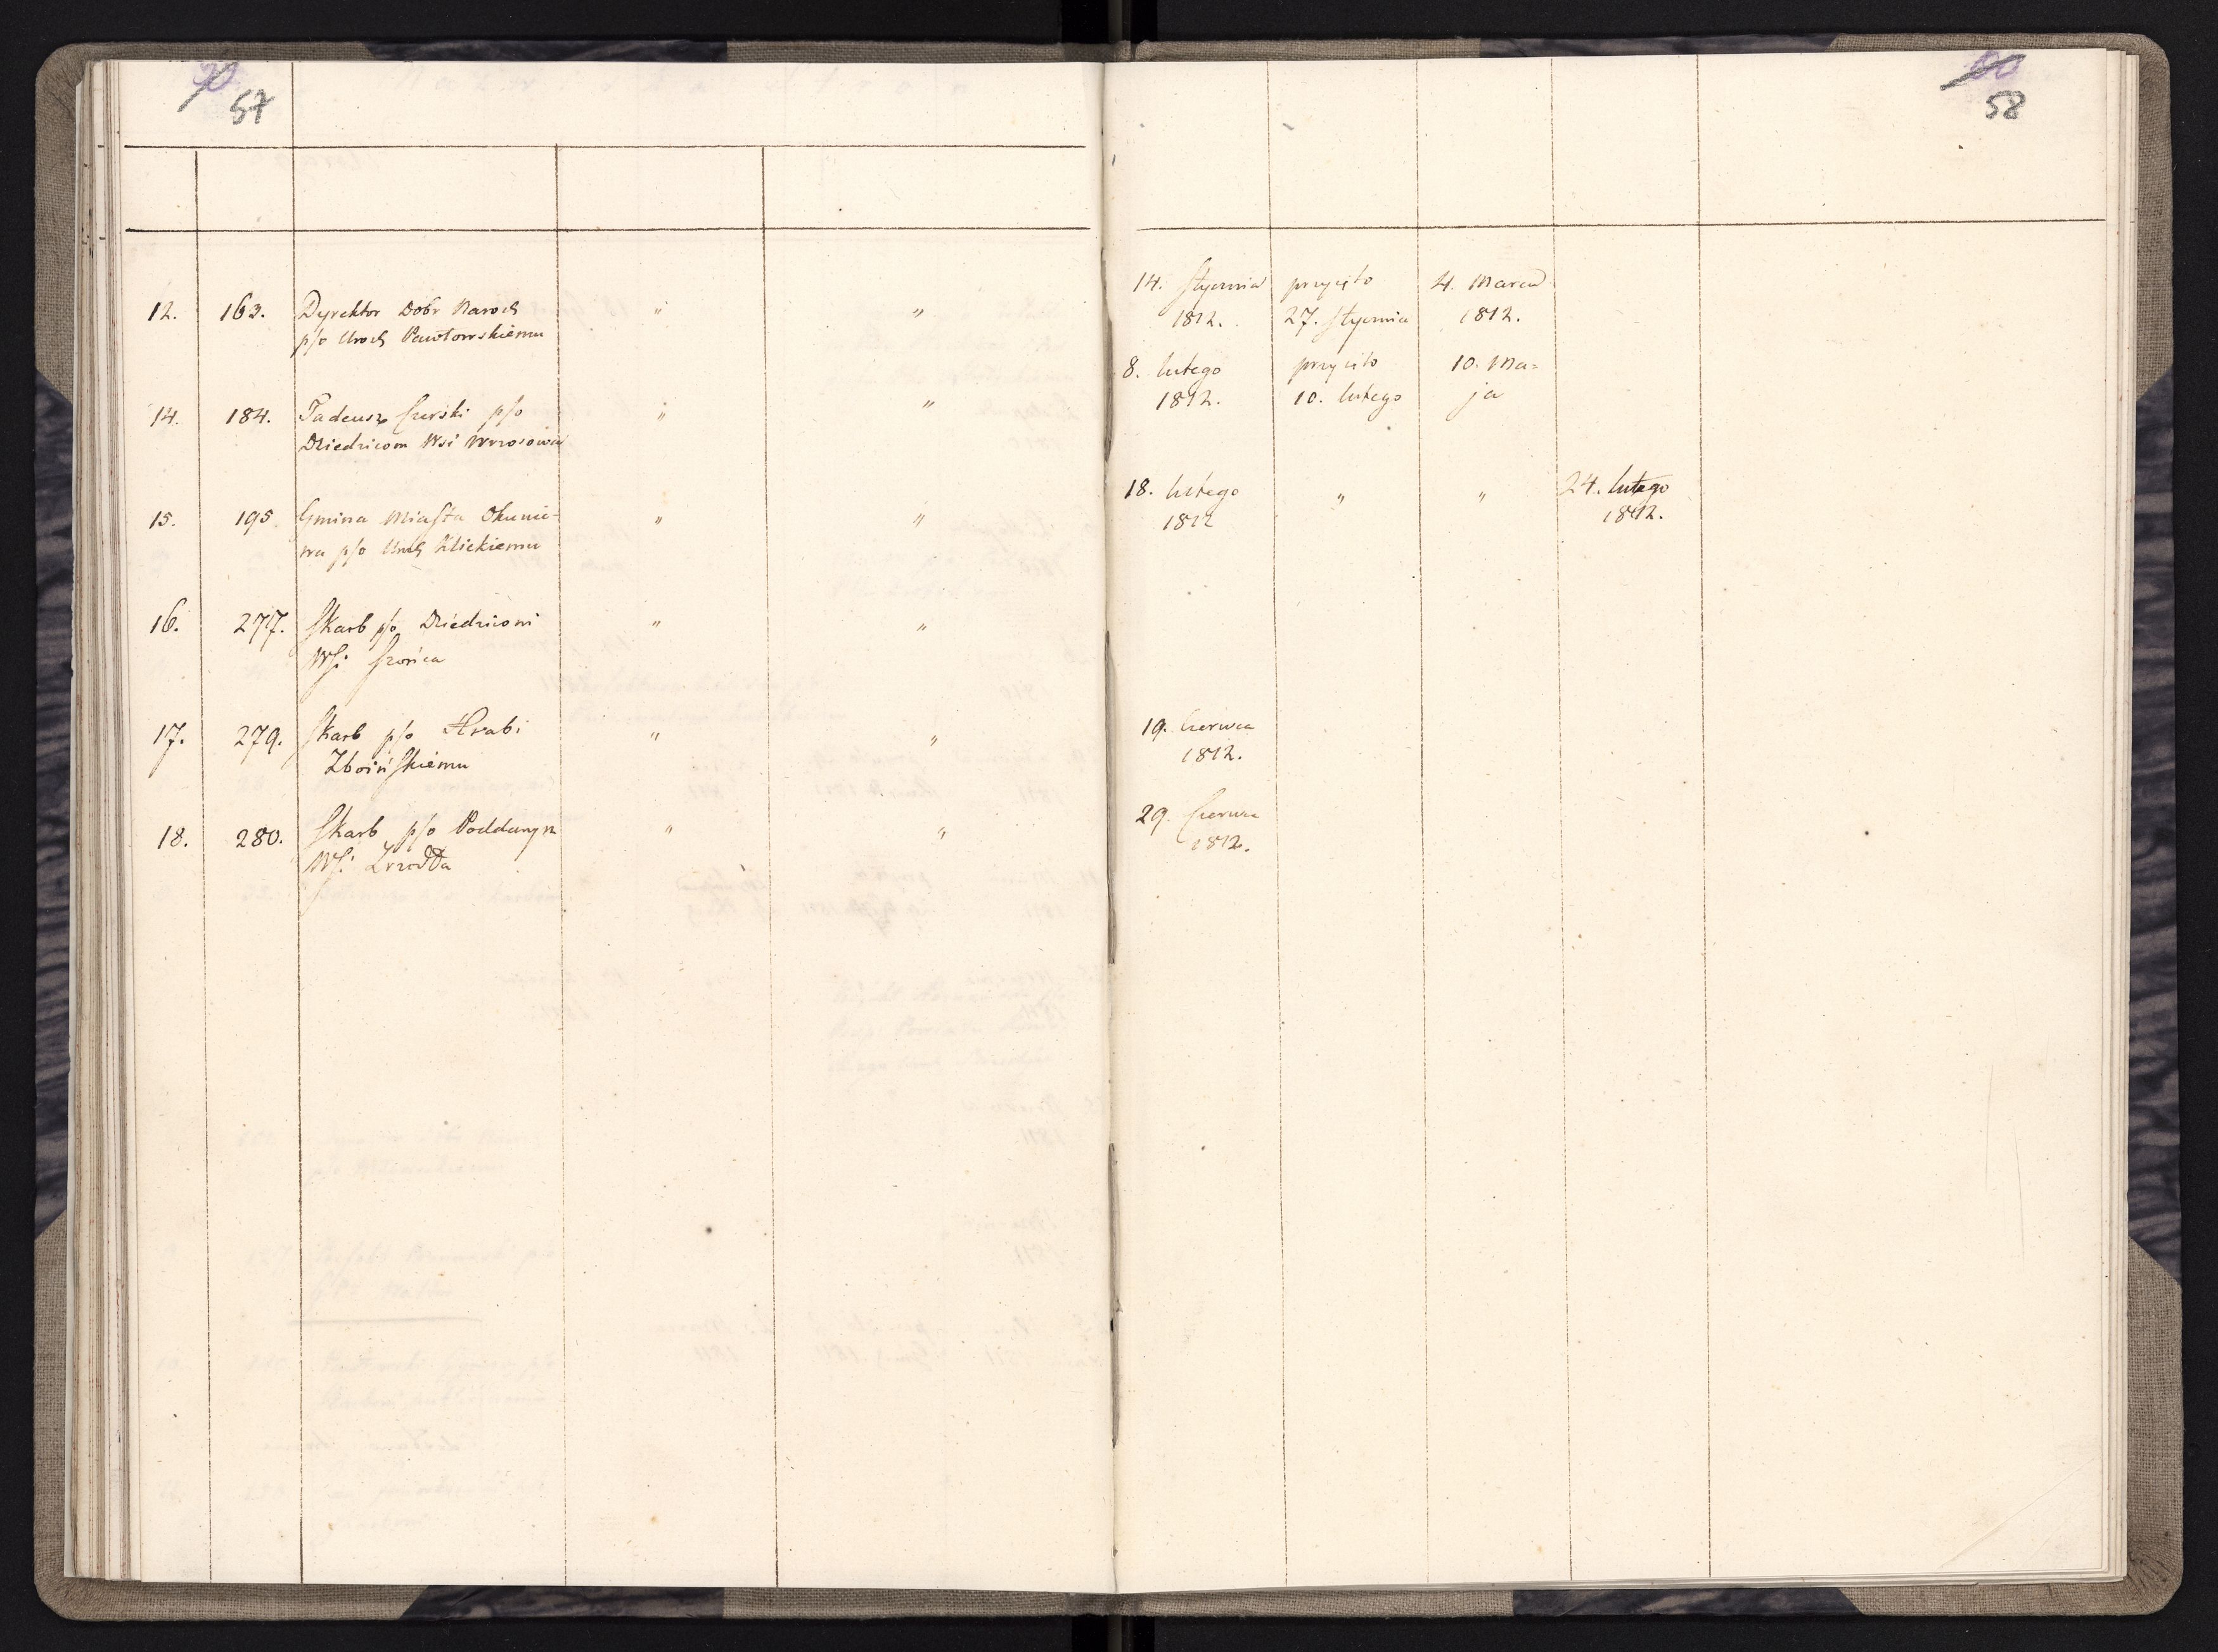 57
58
12. 163. Dyrektor Dobr Narod
p/o Urod Pawłowskiemu
" "
14. Stycznia
1812.
przyięto
27. Stycznia
4. Marca
1812.
14. 184. Tadeusz p/o
Dziedzicom Wsi
" "
8. lutego
1812.
przyięto
10. lutego
10. Ma=
ja
15. 195 Gmina Miasta Okunie-
wa p/o Klickiemu
" "
18. lutego
1812
" "
24. lutego
1812.
16. 277. Skarb p/o Dziedzicowi
WSi
" "
17. 279. Skarb p/o Hrabi
Zboińskiemu
" "
19. Czerwca
1812.
18. 280. Skarb p/o Poddanym
WSi Zrzodła
" "
29. Czerwca
1812.